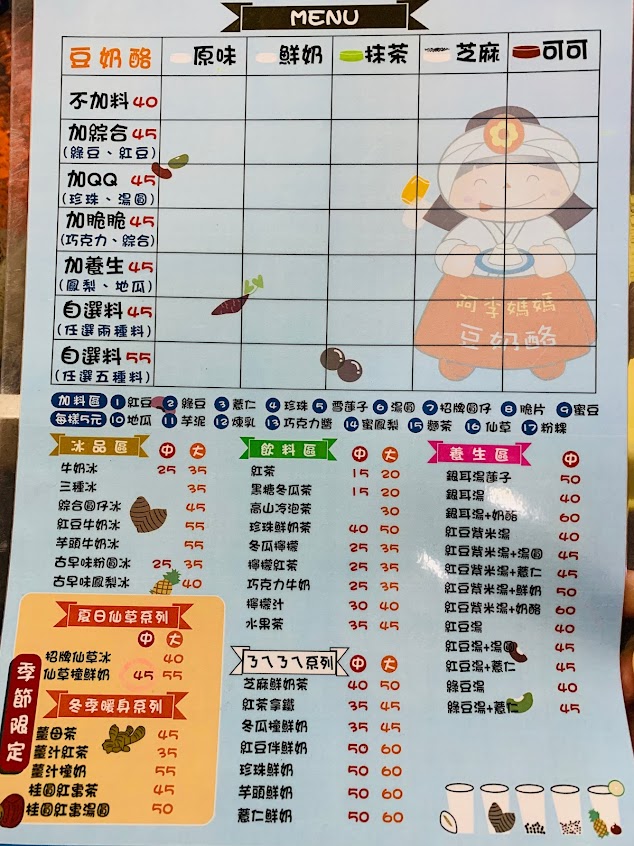 MENU
豆奶酪 原味 鮮奶 抹茶 芝麻 可可
不加料 40
加綜合 45
(綠豆、紅豆)
加QQ 45
(珍珠、湯圓)
加脆脆 45
(巧克力、綜合)
加養生 45
(鳳梨、地瓜)
自選料 45
(任選兩種料)
自選料 55
(任選五種料)
阿李媽媽
豆奶酪
加料區 1 紅豆 2 綠豆 3 薏仁 4 珍珠 5 雪蓮子 6 湯圓 7 招牌圓仔 8 脆片 9 蜜豆
每樣5元 10 地瓜 11 芋泥 12 煉乳 13 巧克力醬 14 蜜鳳梨 15 麵茶 16 仙草 17 粉粿
冰品區 中 大
牛奶冰 25 35
三種冰 35
綜合圓仔冰 45
紅豆牛奶冰 55
芋頭牛奶冰 55
古早味粉圓冰 25 35
古早味鳳梨冰 40
飲料區 中 大
紅茶 15 20
黑糖冬瓜茶 15 20
高山冷泡茶 30
珍珠鮮奶茶 40 50
冬瓜檸檬 25 35
檸檬紅茶 25 35
巧克力牛奶 25 35
檸檬汁 30 40
水果茶 35 45
養生區 中
銀耳湯蓮子 50
銀耳湯 40
銀耳湯+奶酪 60
紅豆紫米湯 40
紅豆紫米湯+湯圓 45
紅豆紫米湯+薏仁 45
紅豆紫米湯+鮮奶 50
紅豆紫米湯+奶酪 60
紅豆湯 40
紅豆湯+湯圓 45
紅豆湯+薏仁 45
綠豆湯 40
綠豆湯+薏仁 45
季節限定
夏日仙草系列
中 大
招牌仙草冰 40
仙草撞鮮奶 45 55
冬季暖身系列
薑母茶 45
薑汁紅茶 35
薑汁撞奶 55
桂圓紅棗茶 45
桂圓紅棗湯圓 50
ㄋㄟㄋㄟ系列 中 大
芝麻鮮奶茶 40 50
紅茶拿鐵 35 45
冬瓜撞鮮奶 35 45
紅豆伴鮮奶 50 60
珍珠鮮奶 50 60
芋頭鮮奶 50 60
薏仁鮮奶 50 60